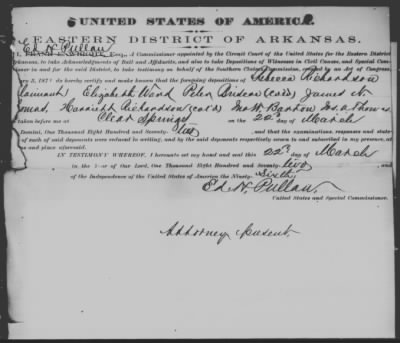 UNITED STATES OF AMERICA.
EASTERN DISTRICT OF ARKANSAS.
I, Ed. N. Pullam, Esq., A Commissioner appointed by the Circuit Court of the United States for the Eastern District
Arkansas, to take Acknowledgments of Bail and Affidavits, and also to take Depositions of Witnesses in Civil Causes, and Special Com-
sioner in and for the said District, to take testimony on behalf of the Southern Claims Commission, created by an Act of Congress,
3, 187 do hereby certify and make known that the foregoing depositions of Rebecca Richardson
laimant Elizabeth Ward Peter (col'd) James N.
Hannah Richardson (col'd) Jno. W. Barton
taken before me at Clear Springs on the 22d day of March
Domini, One Thousand Eight Hundred and Seventy-two, and that the examinations, responses and state-
of each of said deponents were reduced to writing, and by the said deponents respectively sworn to and subscribed in my presence, at
and place aforesaid.
IN TESTIMONY WHEREOF, I hereunto set my hand and seal this 22d day of March
in the Year of our Lord, One Thousand Eight Hundred and Seventy-two, and
of the Independence of the United States of America the Ninety-Sixth.
Ed. N. Pullam.
United States and Special Commissioner.
Attorney present.